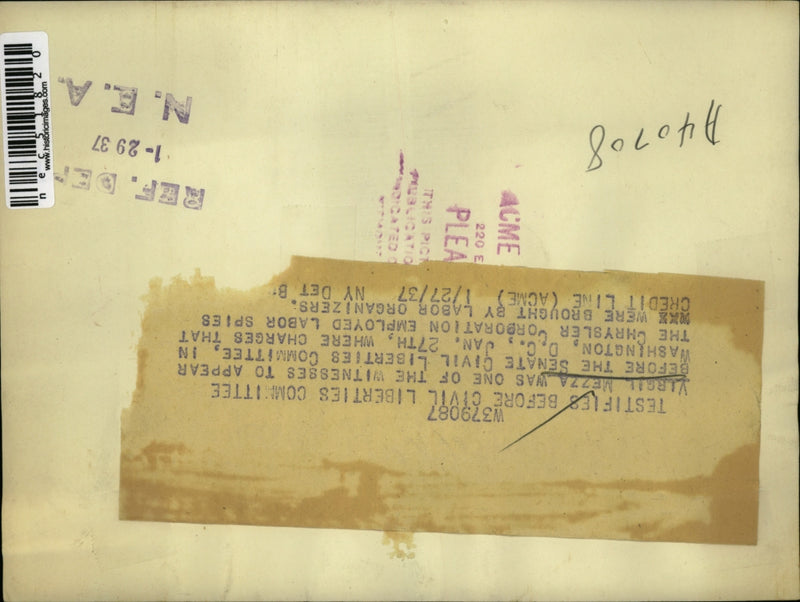 W379087
TESTIFIES BEFORE CIVIL LIBERTIES COMMITTEE
VIRGIL MEZZA WAS ONE OF THE WITNESSES TO APPEAR
BEFORE THE SENATE CIVIL LIBERTIES COMMITTEE, IN,
WASHINGTON, D.C., JAN. 27TH, WHERE CHARGES THAT
THE CHRYSLER CORPORATION EMPLOYED LABOR SPIES
WERE BROUGHT BY LABOR ORGANIZERS.
CREDIT LINE (ACME) 1/27/37 NY DET
A40708
ACME
220 E
PLEA
THIS PIC
REF. DE
1-29 37
N.E.A.
www.historicimages.com
nec51820